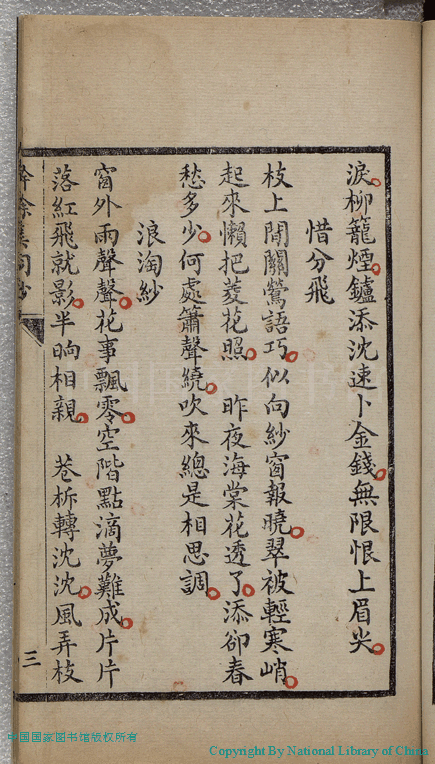 淚柳籠煙鑪添沈速卜金錢無限恨上眉尖
惜分飛
枝上間關鶯語巧似向紗窗報曉翠被輕寒峭
起來懶把菱花照 昨夜海棠花透了添卻春
愁多少何處簫聲繞吹來總是相思調
浪淘紗
窗外雨聲聲花事飄零空階點滴夢難成片片
落紅飛就影半晌相親 巷柝轉沈沈風弄枝
集詞鈔
三
中国国家图书馆版权所有
Copyright By National Library of China